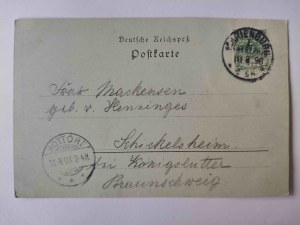 Deutsche Reichspost
Postkarte
Frau Mackensen
geb. v. Henninges
Schickelsheim
bei Königslutter
Braunschweig